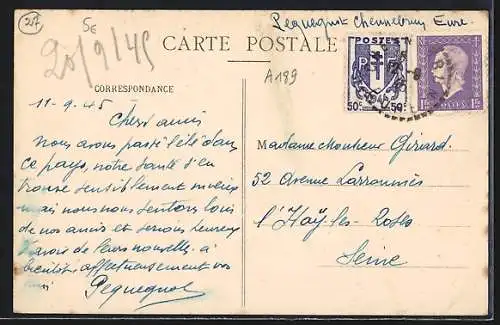 27
5€
20/9/45
Pequegnot Chennebrun Eure
CARTE POSTALE
A199
CORRESPONDANCE
11-9-45
Chers amis
nous avons passé l'été dans
ce pays, notre santé s'en
trouve sensiblement mieux
mais nous nous sentons loin
de nos amis et serions heureux
d'avoir de leurs nouvelles. à
bientôt affectueusement vos
amis
Pequegnot
POSTES
RF
50c 50c
Madame Monsieur Girard
52 Avenue Larroumès
l'Haÿ-les-Roses
Seine